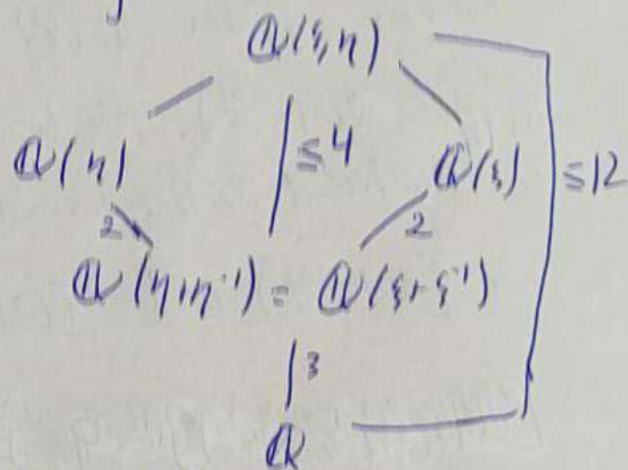 ℚ(ξ,η)
ℚ(η) ≤4 ℚ(ξ) ≤12
2 2
ℚ(η+η⁻¹) = ℚ(ξ+ξ⁻¹)
3
ℚ